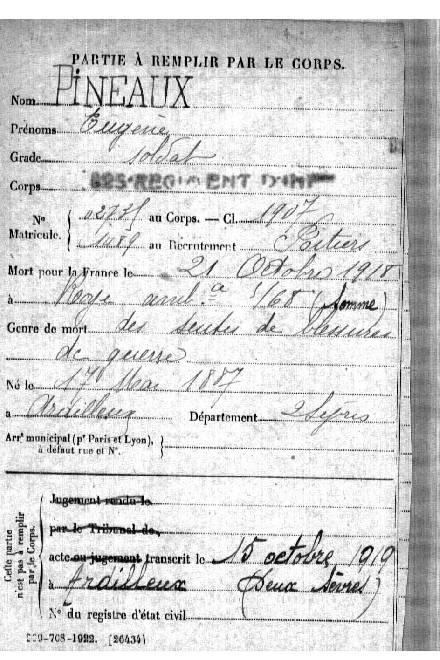 PARTIE À REMPLIR PAR LE CORPS.
Nom PINEAUX
Prénoms Eugène
Grade soldat
Corps RÉGIMENT D'INF
N° au Corps. — Cl. 1907
Matricule. au Recrutement Poitiers
Mort pour la France le 21 Octobre 1918
à Roye amb ce 5/68 (Somme)
Genre de mort des suites de blessures
de guerre
Né le 17 Mai 1887
à Ardilleux Département 2 Sèvres
Arrt municipal (pr Paris et Lyon),
à défaut rue et N°.
Cette partie
n'est pas à remplir
par le Corps.
Jugement rendu le
par le Tribunal de
acte ou jugement transcrit le 15 octobre 1919
à Ardilleux (Deux Sèvres)
N° du registre d'état civil
-708-1922. [26434]